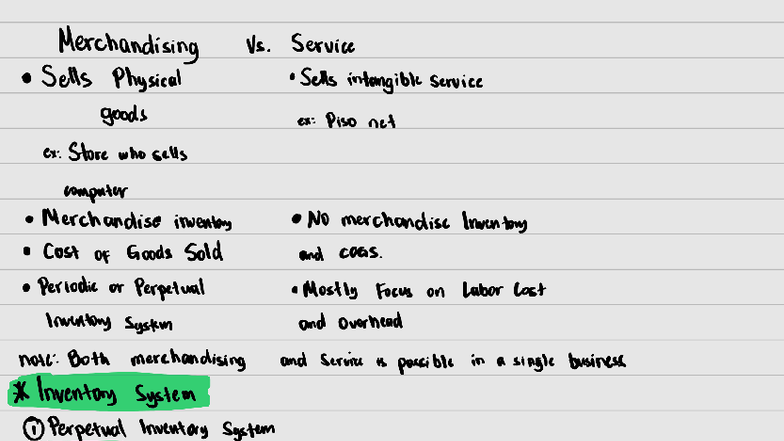 Merchandising Vs. Service
• Sells Physical • Sells intangible service
goods ex: Piso net
ex: Store who sells
computer
• Merchandise inventory • No merchandise Inventory
• Cost of Goods Sold and COGS.
• Periodic or Perpetual • Mostly Focus on Labor Cost
Inventory System and Overhead
note: Both merchandising and service is possible in a single business
* Inventory System
① Perpetual Inventory System